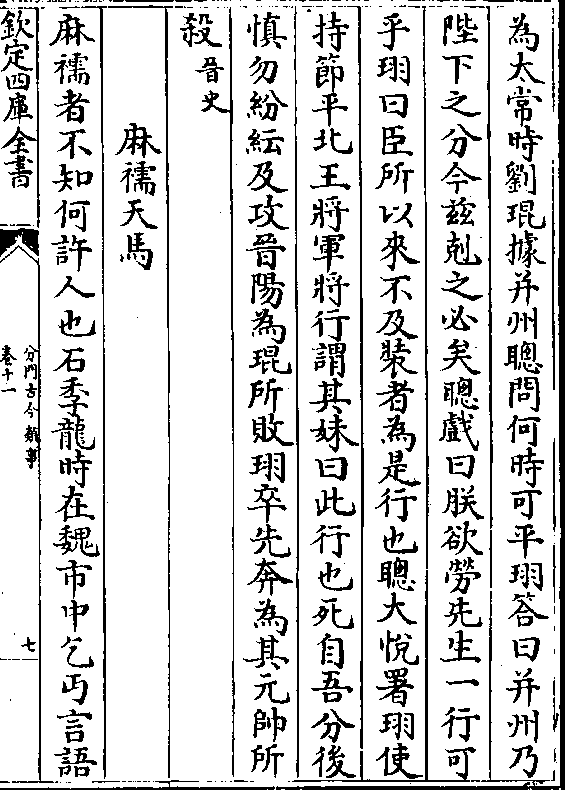 為太常時劉琨據并州聰問何時可平珝答曰并州乃
陛下之分今兹剋之必矣聰戲曰朕欲勞先生一行可
乎珝曰臣所以來不及裝者為是行也聰大悅署珝使
持節平北王將軍將行謂其妹曰此行也死自吾分後
慎勿紛紜及攻晉陽為琨所敗珝卒先奔為其元帥所
殺晉史
麻襦天馬
麻襦者不知何許人也石季龍時在魏市中乞丐言語
欽定四庫全書
分門古今類事
卷十一
七